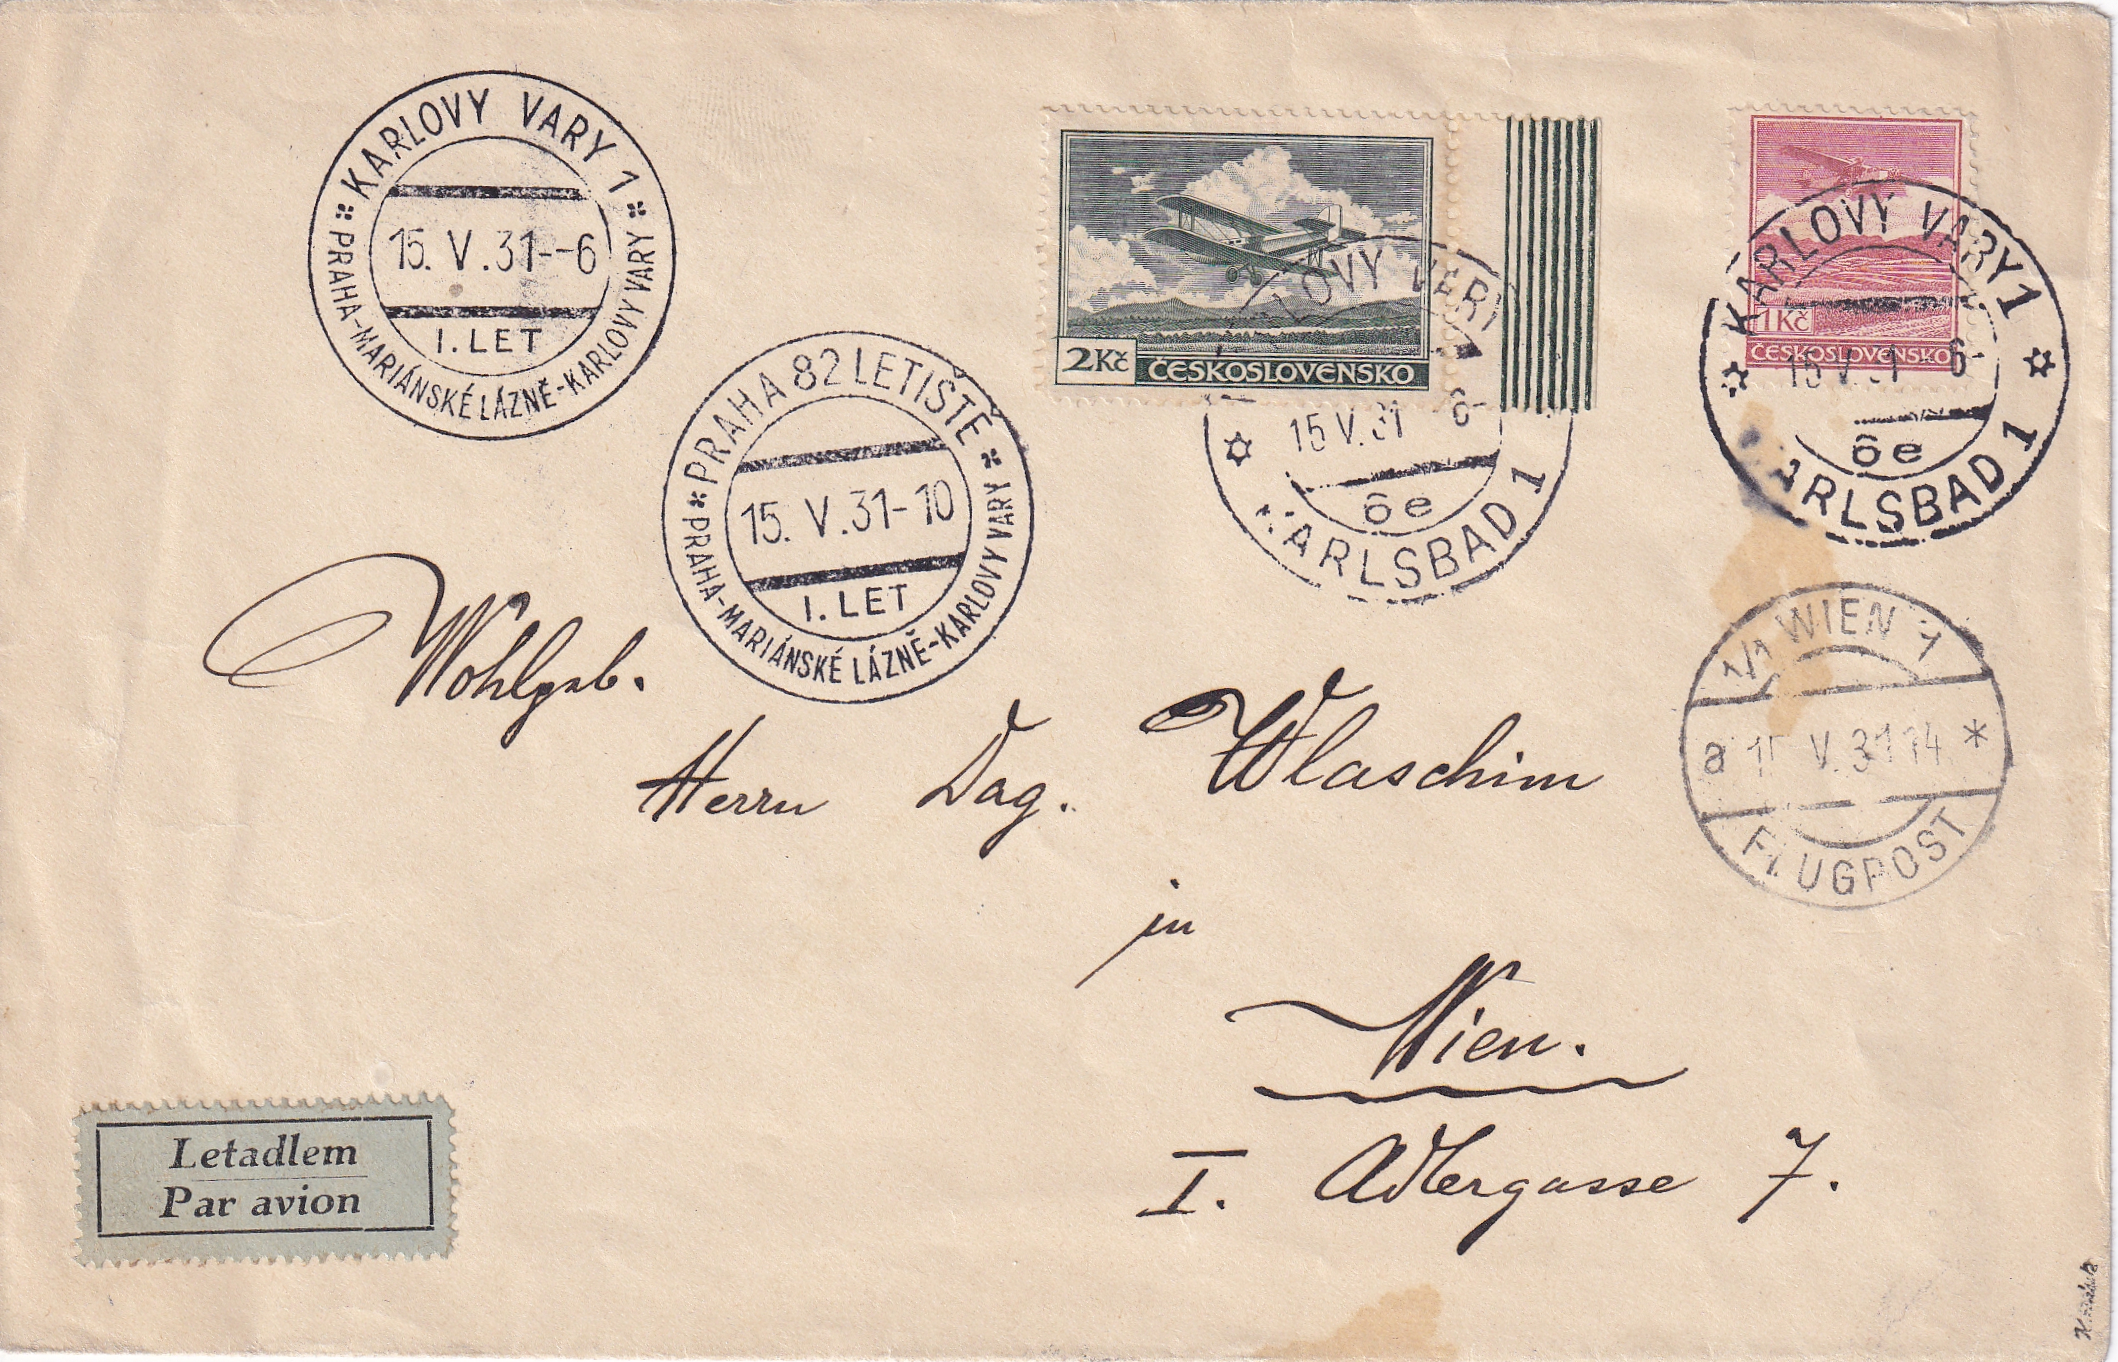 KARLOVY VARY 1
15. V. 31--6
I. LET
PRAHA-MARIÁNSKÉ LÁZNĚ-KARLOVY VARY
PRAHA 82 LETIŠTĚ
15. V. 31-10
I. LET
PRAHA-MARIÁNSKÉ LÁZNĚ-KARLOVY VARY
2Kč ČESKOSLOVENSKO
LOVY VARY
15 V. 31 6-
6e
KARLSBAD 1
1Kč
ČESKOSLOVENSKO
KARLOVY VARY 1
15 V. 31 6-
6e
KARLSBAD 1
1/1 WIEN 1
a 15 V. 31 14 *
FLUGPOST
Wohlgeb.
Herrn Dag. Wlaschim
in
Wien.
I. Adlergasse 7.
Letadlem
Par avion